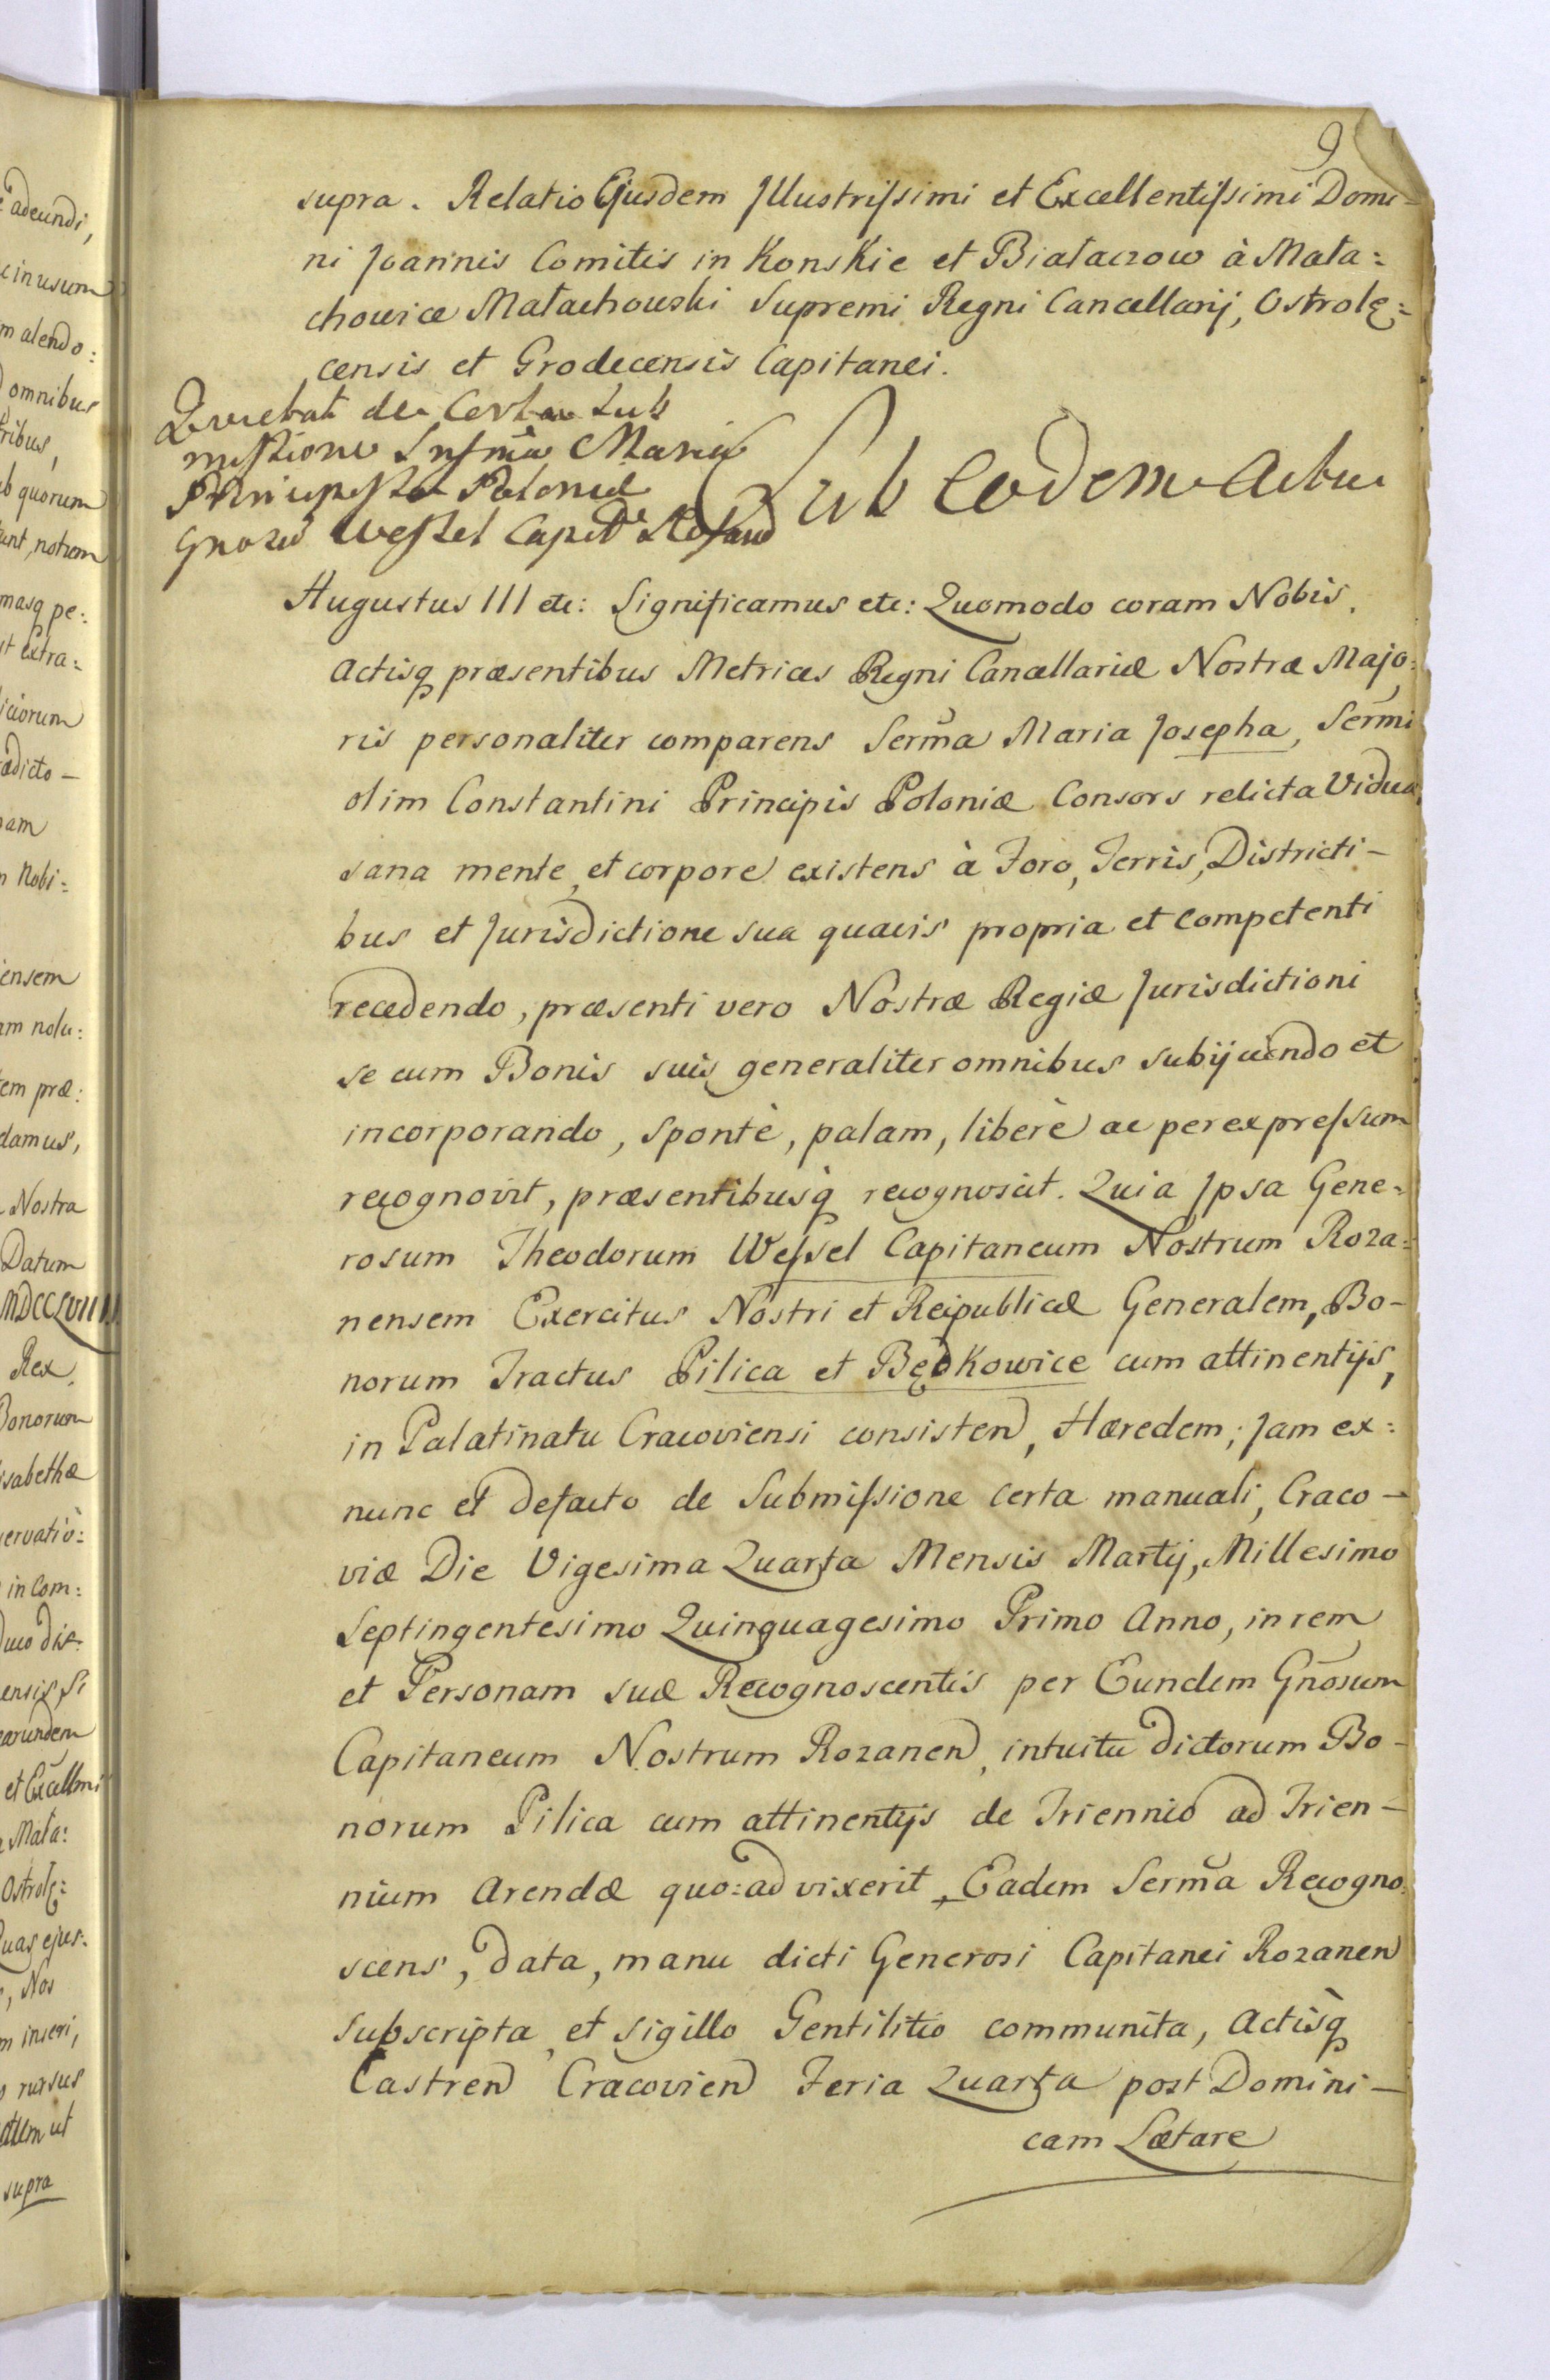 adeundi,
cinusum
m alendo:
omnibus
tribus,
b quorum
unt, notrem
masq pe:
it Extra:
iciorum
adicto —
nam
n Nobi:
iensem
am nolu:
tem præ:
damus,
Nostra
Datum
MDCCLVIIII
Rex,
Bonorum
isabethæ
servatiō:
in Com:
Duo dis:
ensis, Si
earundem
et Excellmi
Mała:
Ostrołę:
Quas ejus:
, Nos
m inseri,
rursus
ut
supra
9
supra. Relatio Ejusdem Jllustrissimi et Excellentissimi Domi-
ni Joannis Comitis in Konskie et Białaczow à Mała:
chowice Małachowski Supremi Regni Cancellarij, Ostrolę:
censis et Grodecensis Capitanei.
Quietat de Certa Sub
missione Serma Maria
Principissa Poloniæ
Gnosū Wessel Capit Rozan
Sub Eodem Actu
Augustus III etc: Significamus etc: Quomodo coram Nobis,
Actisq præsentibus Metrices Regni Cancellariæ Nostræ Majo:
ris personaliter comparens Serma Maria Josepha, Sermi
olim Constantini Principis Poloniæ Consors relicta Vidua,
sana mente, et corpore existens à Foro, Terris, Districti-
bus et Jurisdictione sua quavis propria et competenti
recedendo, præsenti vero Nostræ Regiæ Jurisdictioni
se cum Bonis suis generaliter omnibus subijciendo et
incorporando, spontè, palam, liberè ac per expressum
recognovit, præsentibusq recognoscit. Quia Jpsa Gene-
rosum Theodorum Wessel Capitaneum Nostrum Roza:
nensem Exercitus Nostri et Reipublicæ Generalem, Bo-
norum Tractus Pilica et Będkowice cum attinentijs,
in Palatinatu Cracoviensi consisten, Hæredem; Jam ex:
nunc et defacto de Submissione certa manuali, Craco-
viæ Die Vigesima Quarta Mensis Martij, Millesimo
Septingentesimo Quinquagesimo Primo Anno, in rem
et Personam suæ Recognoscentis per Eundem Gnosum
Capitaneum Nostrum Rozanen, intuitu dictorum Bo-
norum Pilica cum attinentijs de Triennio ad Trien-
nium Arendæ quo=ad vixerit, Eadem Serma Recogno:
scens, data, manu dicti Generosi Capitanei Rozanen
subscripta, et sigillo Gentilitio communita, Actisq
Castren Cracovien Feria Quarta post Domini-
cam Lætare